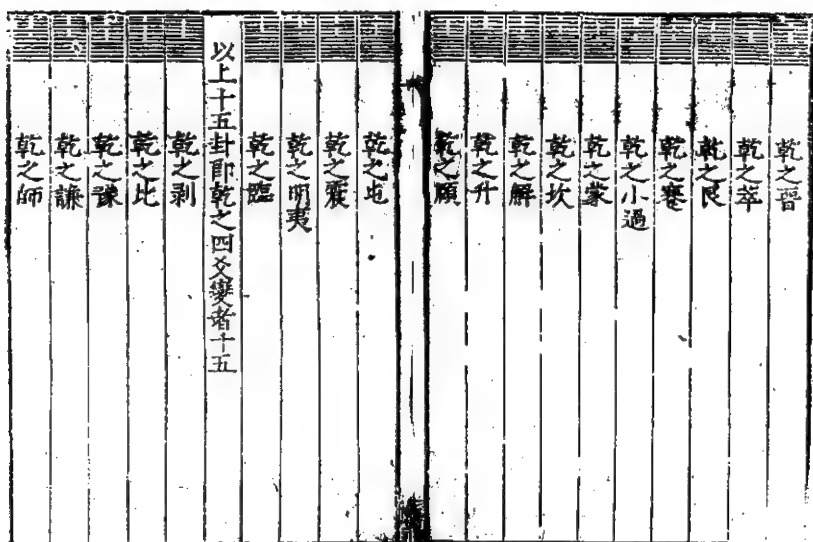 乾之晉
乾之萃
乾之艮
乾之蹇
乾之小過
乾之蒙
乾之坎
乾之解
乾之升
乾之頤
乾之屯
乾之震
乾之明夷
乾之臨
以上十五卦即乾之四爻變者十五
乾之剥
乾之比
乾之豫
乾之謙
乾之師